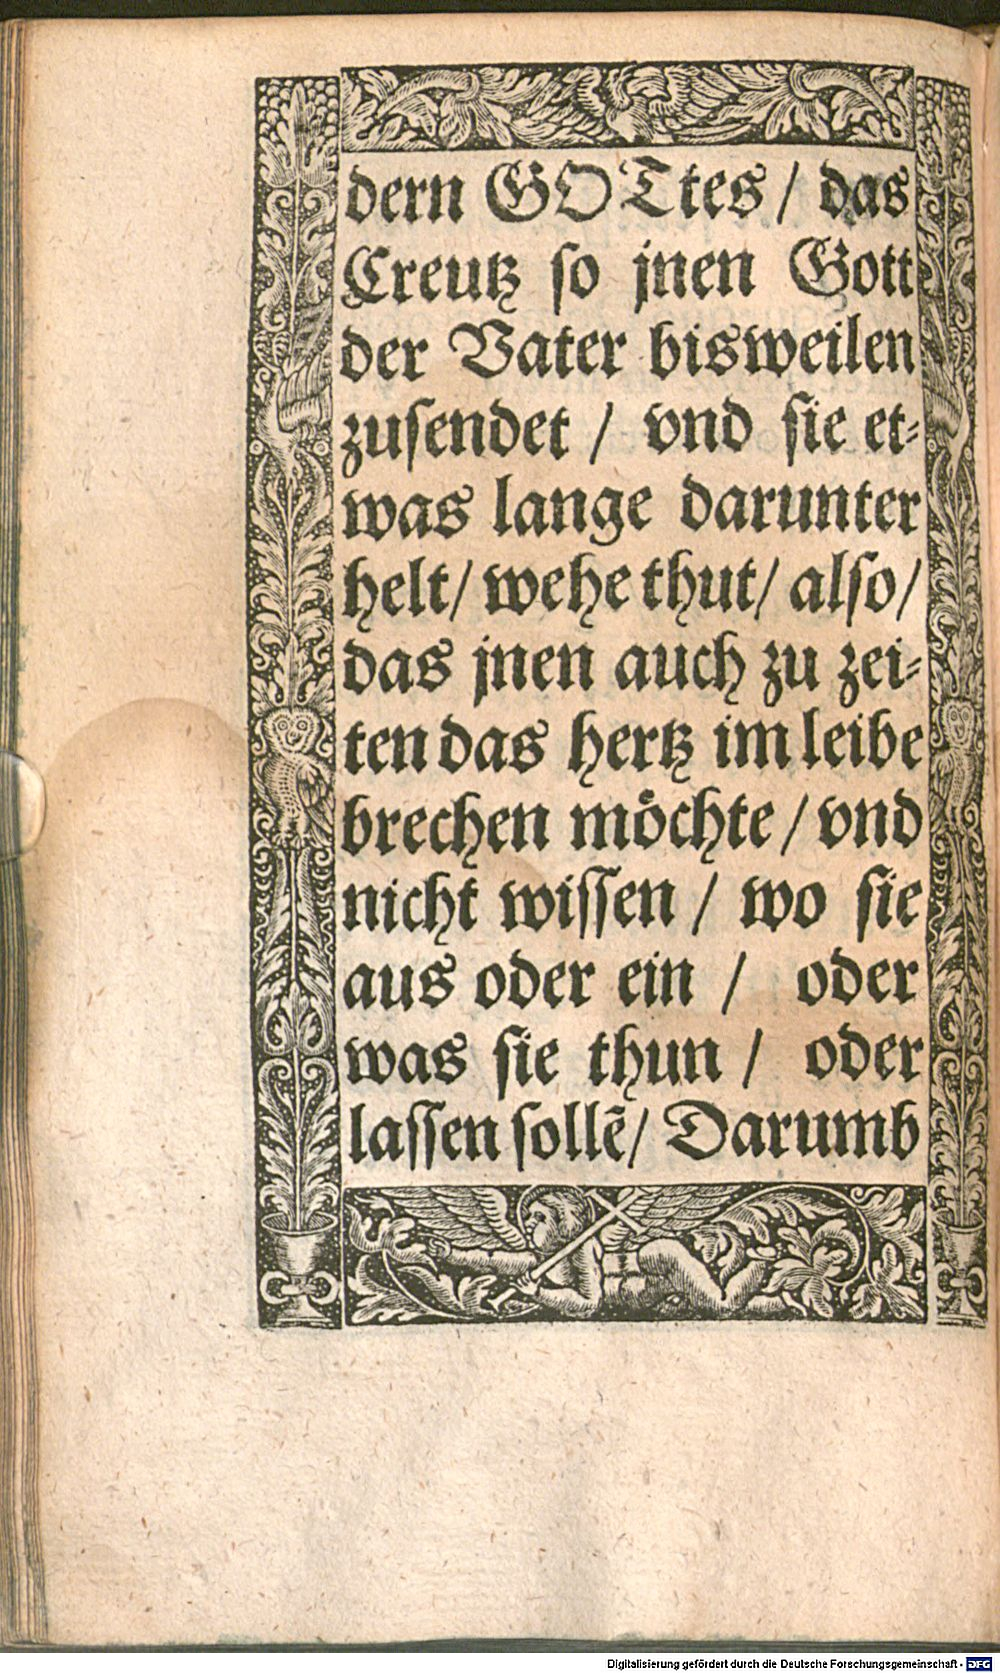 dern GOTtes / das
Creutz so jnen Gott
der Vater bisweilen
zusendet / vnd sie et-
was lange darunter
helt / wehe thut / also /
das jnen auch zu zei-
ten das hertz im leibe
brechen möchte / vnd
nicht wissen / wo sie
aus oder ein / oder
was sie thun / oder
lassen sollē / Darumb
Digitalisierung gefördert durch die Deutsche Forschungsgemeinschaft - DFG